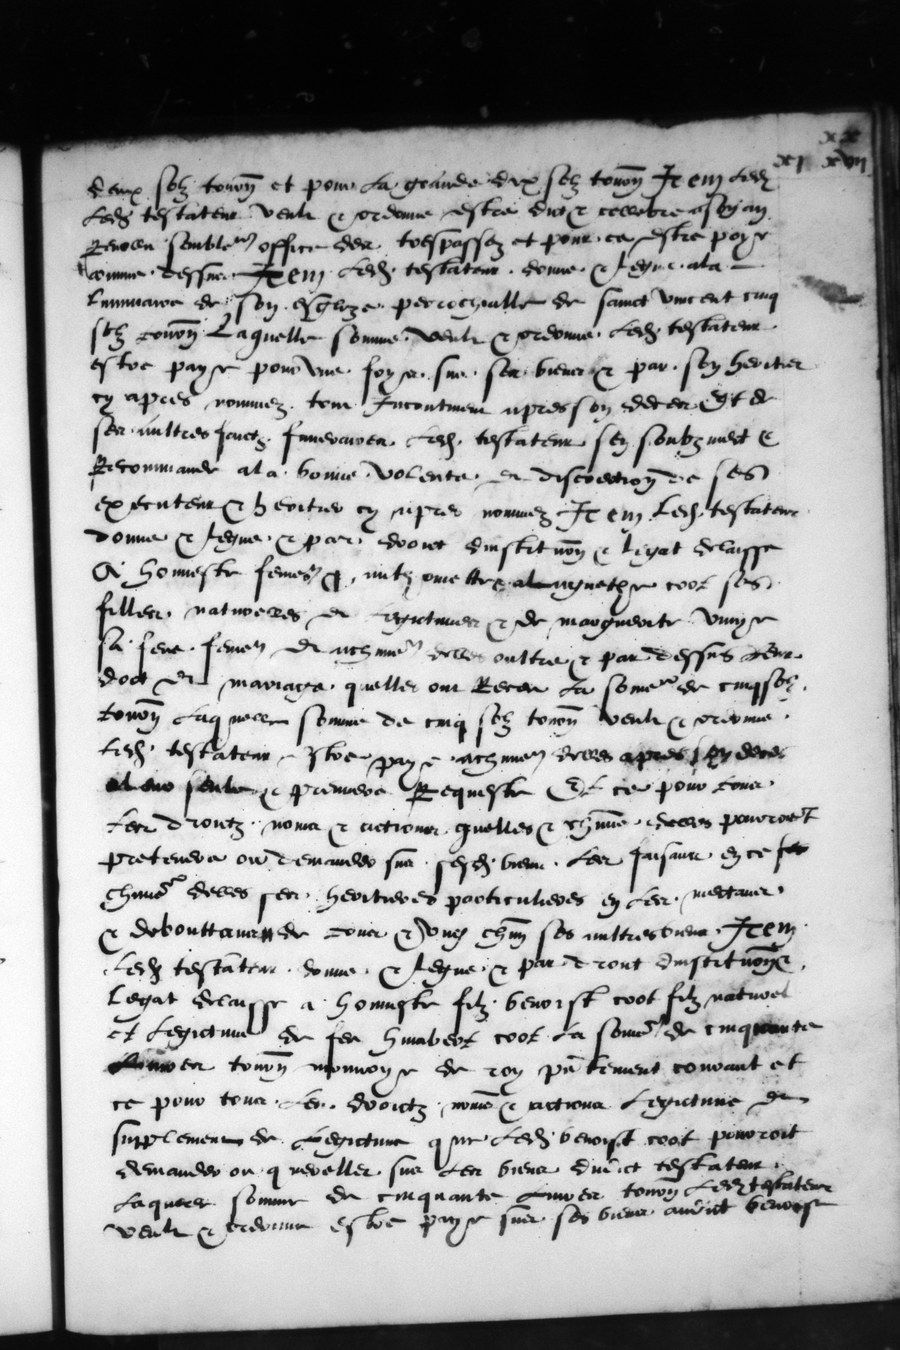 xx
xi xvii
deux solz tourn et pour la grande dix solz tourn Item led
led testateur veult et ordonne estre dict et cellebre a son an
Revolu semble office des trespassez et pour ce estre paye
comme dessus Item led testateur donne et legue a la
luminaire de son esglize perrochialle de sainct vincent cinq
solz tourn Laquelle somme veult et ordonne led testateur
estre paye pour une foys sur ses biens et par son heritier
cy apres nommez tout Incontinent apres son deces Et de
ses aultres funeraires led testateur sen soubzmect et
Recommande a la bonne volente et discretion de ses
executeur et heritier cy apres nommez Item Led testateur
donne et legue et par droict dinstitution et legat delaisse
A honneste femes coot ses
filles naturelles et legitimes et de marguerite
sa feue feme et a chune delles oultre et par dessus leur
doct de mariage quelles ont Receu la some de cinq solz
tourn laquelle somme de cinq solz tourn veult et ordonne
led testateur estre paye a chune delles apres son deces
a leur seulle et premiere Requeste Et ce pour tous
les droictz noms et actions quelles et chune delles pourroit
pretendre ou demander sur sesd biens les faisant en ce
chune delles ses heritieres particulieres en les mectant
et deboutant de tous et ungs chun ses aultres biens Item
led testateur donne et legue et par droict dinstitution et
legat delaisse a honneste filz benoist coot filz naturel
et legitime de feu coot la some de cinquante
livres tourn monnoye de roy pntement courant et
ce pour tous les droictz noms et actions legitime et
supplement de legitime que led benoist coot pourroit
demander ou quereller sur les biens dudict testateur
laquelle somme de cinquante livres tourn led testateur
veult et ordonne estre paye sur ses biens audict benoist